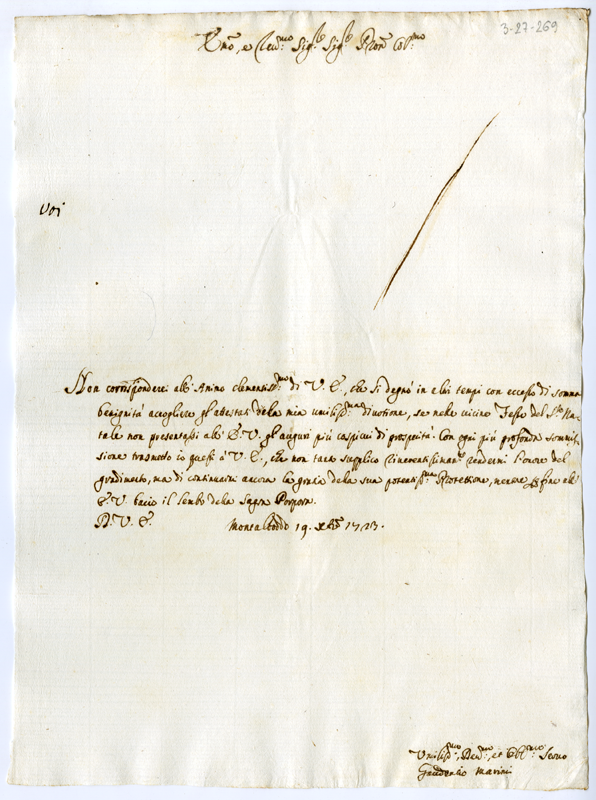 3-27-269
Emo, e Revmo Sigre Sigre Pron Colmo
Voi
Non corrisponderei all' Animo clementissmo di V. E., che si degnò in altri tempi con eccesso di somma
benignità accogliere gl'attestati della mia umilissma divotione, se nelle vicine Feste del SSmo Na-
tale non presentassi all' E. V. gl'auguri più cospicui di prosperità. Con ogni più profonda sommis-
sione trasmetto io questi à V. E., che non tanto supplico riverentissimamte rendermi l'onore del
gradimento, ma di continuarmi ancora la gracia della sua potentissma Protettione, mentre per fine all'
E. V. bacio il lembo della Sagra Porpora.
D. V. E. Montalboddo 19. Xbre 1723.
Umilissmo, Devmo, et Obblmo Servo
Gaudenzio Marini